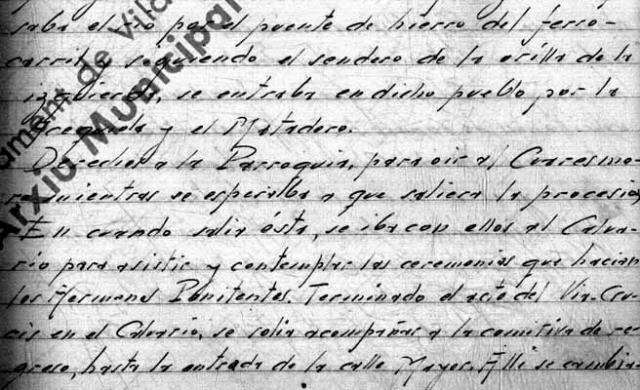 saba el río por el puente de hierro del ferro-
carril y siguiendo el sendero de la orilla de la
izquierda, se entraba en dicho pueblo por la
y el Matadero.
a la Parroquia, para oir al Cuaresme-
ro mientras se esperaba a que saliera la procesión
En cuando salía ésta, se iba con ellos al Calva-
rio para asistir y contemplar las ceremonias que hacían
los Hermanos Penitentes. Terminado el acto del Via-Cru-
cis en el Calvario, se solía acompañar a la comitiva de re-
greso, hasta la entrada de la calle Mayor. Allí se cambia
Arxiu Municipal
de Vila